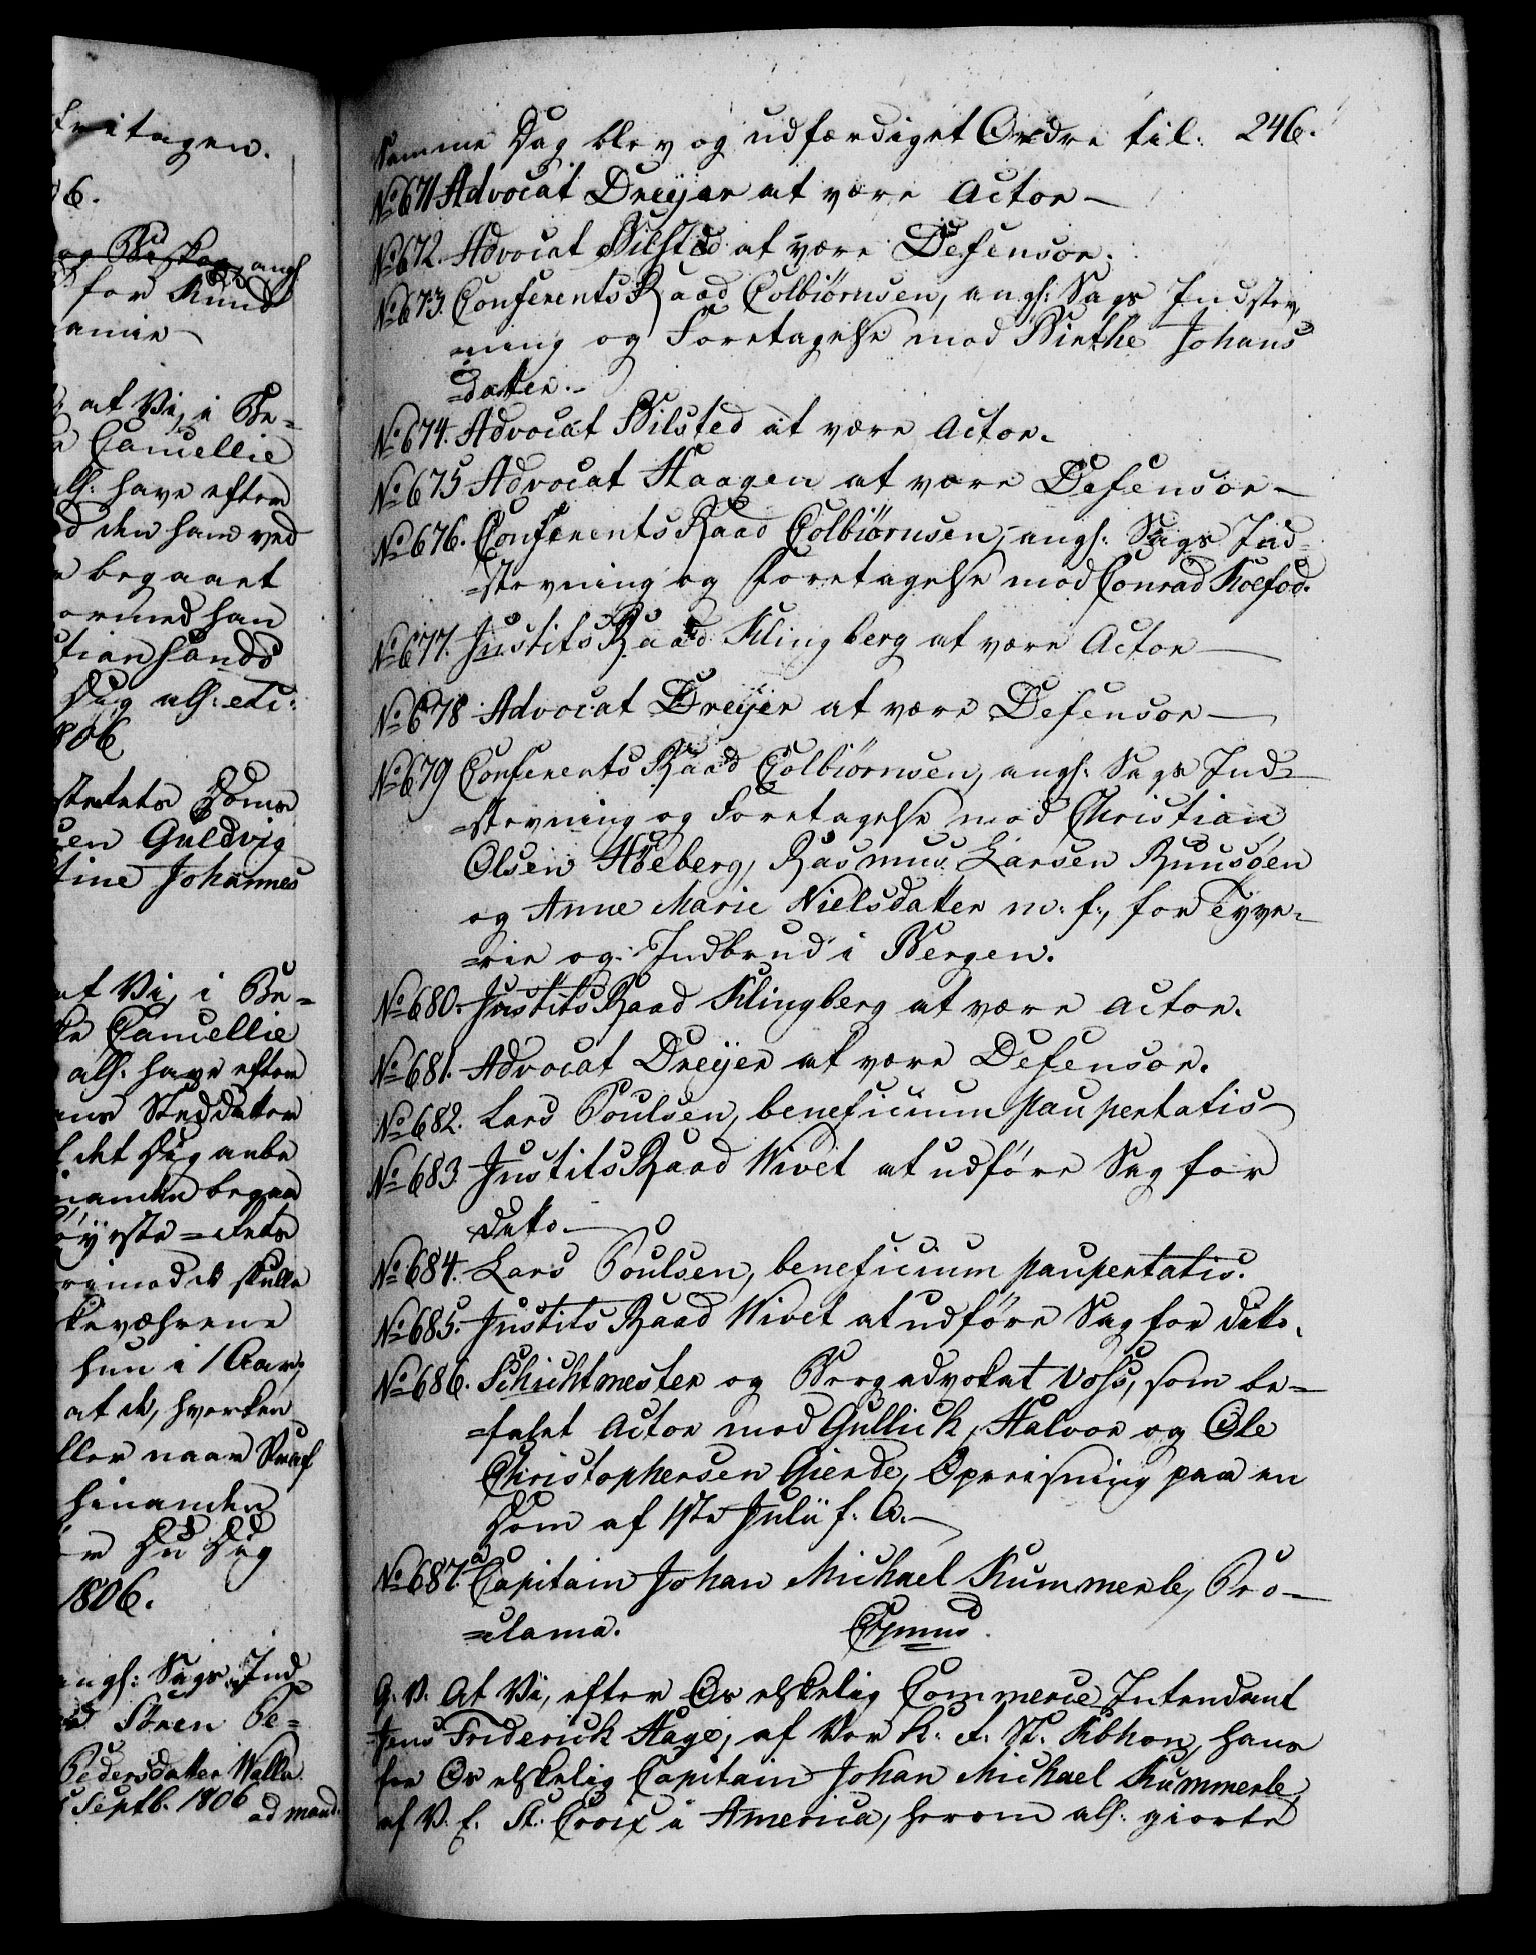 fritagen.
6.
og Biskop, angl:
for Knud
amie
at Vi, i Be-
Cancellie
all: have efter
den ham ved
begaaet
ormed han
tiansands
Dig all: etc:
806
stretets Doms
sen Guldvig
tine Johannes
at Vi, i Be-
ke Cancellie
all: have efter
ens Steddatter
det Dig anbe
manden begaa
øyeste=Rets
rimod de skulle
skevæhrene
hun i 1 Aar,
at de, hverken
ller naar Straf
hinanden
Du Dig
1806.
angl: Sags Ind
Sören Pe-
Pedersdatter Walle
Septb. 1806
ad mand:
246.
Samme Dag blev og udfærdiget Ordre til:
No 671 Advocat Dreyer at være Actor —
No 672. Advocat Bilsted at være Defensor.
No 673. ConferentsRaad Colbiörnsen, angl: Sags Indstev
ning og Foretagelse mod Birthe Johans
=datter. –
No 674. Advocat Bilsted at være Actor.
No 675 Advocat Haagen at være Defensor –
No 676. ConferentsRaad Colbiörnsen, angl: Sags Ind=
=stevning og Foretagelse mod Conrad Koefod.
No 677. JustitsRaad Klingberg at være Actor —
No 678 Advocat Dreyer at være Defensor —
No 679 ConferentsRaad Colbiörnsen, angl: Sags Ind=
=stevning og Foretagelse mod Christian
Olsen Höeberg, Rasmus Larsen Ruusöen
og Anne Marie Nielsdatter m: f:, for Tyve-
=rie og Indbrud i Bergen.
No 680. JustitsRaad Klingberg at være Actor.
No 681. Advocat Dreyer at være Defensor.
No 682. Lars Poulsen, beneficium paupertatis –
No 683. JustitsRaad Wivet at udföre Sag for
dito —
No 684. Lars Poulsen, beneficium paupertatis.
No 685. JustitsRaad Wivet at udföre Sag for dito.
No 686. Schichtmester og Bergadvokat Voss, som be-
=falet Actor mod Gullick, Halvor og Ole
Christophersen Gierde, Opreisning paa en
Dom af 1ste Julii f: A. —
No 687.a Capitain Johan Michael Kummerle, Pro-
=clama.
Cmus.
G. V. At Vi, efter Os elskelig Commerce Intendant
Jens Friderich Hage, af Vor K: F. St. Kbhvn, hans
for Os elskelig Capitain Johan Michael Kummerle,
af V. E. St. Croix i America, herom all: giorte